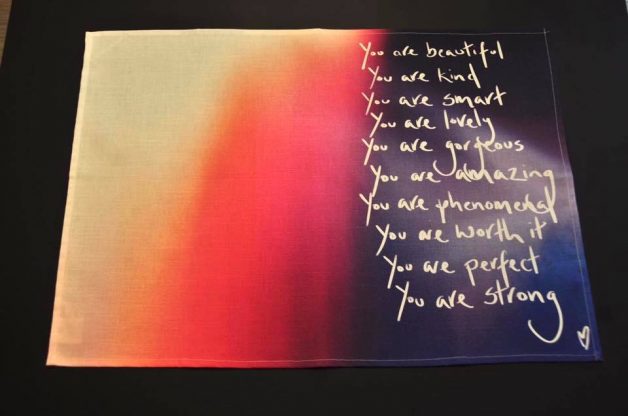 You are beautiful
You are kind
You are smart
You are lovely
You are gorgeous
You are amazing
You are phenomenal
You are worth it
You are perfect
You are strong